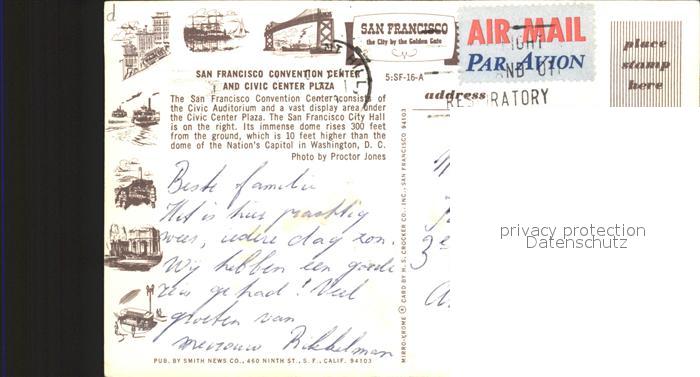 SAN FRANCISCO
the City by the Golden Gate
AIR MAIL
PAR AVION
place
stamp
here
SAN FRANCISCO CONVENTION CENTER
AND CIVIC CENTER PLAZA
5:SF-16-A
address
AND
RESPIRATORY
The San Francisco Convention Center consists of
the Civic Auditorium and a vast display area under
the Civic Center Plaza. The San Francisco City Hall
is on the right. Its immense dome rises 300 feet
from the ground, which is 10 feet higher than the
dome of the Nation's Capitol in Washington, D. C.
Photo by Proctor Jones
Beste familie
Het is hier prachtig
weer, iedere dag zon.
Wij hebben een goede
reis gehad! Veel
groeten van
mevrouw
PUB. BY SMITH NEWS CO., 460 NINTH ST., S. F., CALIF. 94103
MIRRO-KROME ® CARD BY H. S. CROCKER CO., INC., SAN FRANCISCO 94103
privacy protection
Datenschutz